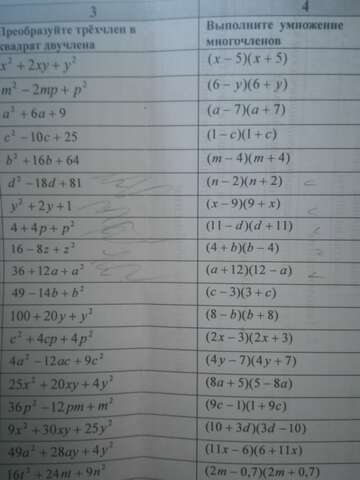 3 4
Преобразуйте трёхчлен в Выполните умножение
квадрат двучлена многочленов
x² + 2xy + y² (x − 5)(x + 5)
m² − 2mp + p² (6 − y)(6 + y)
a² + 6a + 9 (a − 7)(a + 7)
c² − 10c + 25 (1 − c)(1 + c)
b² + 16b + 64 (m − 4)(m + 4)
d² − 18d + 81 (n − 2)(n + 2)
y² + 2y + 1 (x − 9)(9 + x)
4 + 4p + p² (11 − d)(d + 11)
16 − 8z + z² (4 + b)(b − 4)
36 + 12a + a² (a + 12)(12 − a)
49 − 14b + b² (c − 3)(3 + c)
100 + 20y + y² (8 − b)(b + 8)
c² + 4cp + 4p² (2x − 3)(2x + 3)
4a² − 12ac + 9c² (4y − 7)(4y + 7)
25x² + 20xy + 4y² (8a + 5)(5 − 8a)
36p² − 12pm + m² (9c − 1)(1 + 9c)
9x² + 30xy + 25y² (10 + 3d)(3d − 10)
49a² + 28ay + 4y² (11x − 6)(6 + 11x)
16t² + 24nt + 9n² (2m − 0,7)(2m + 0,7)